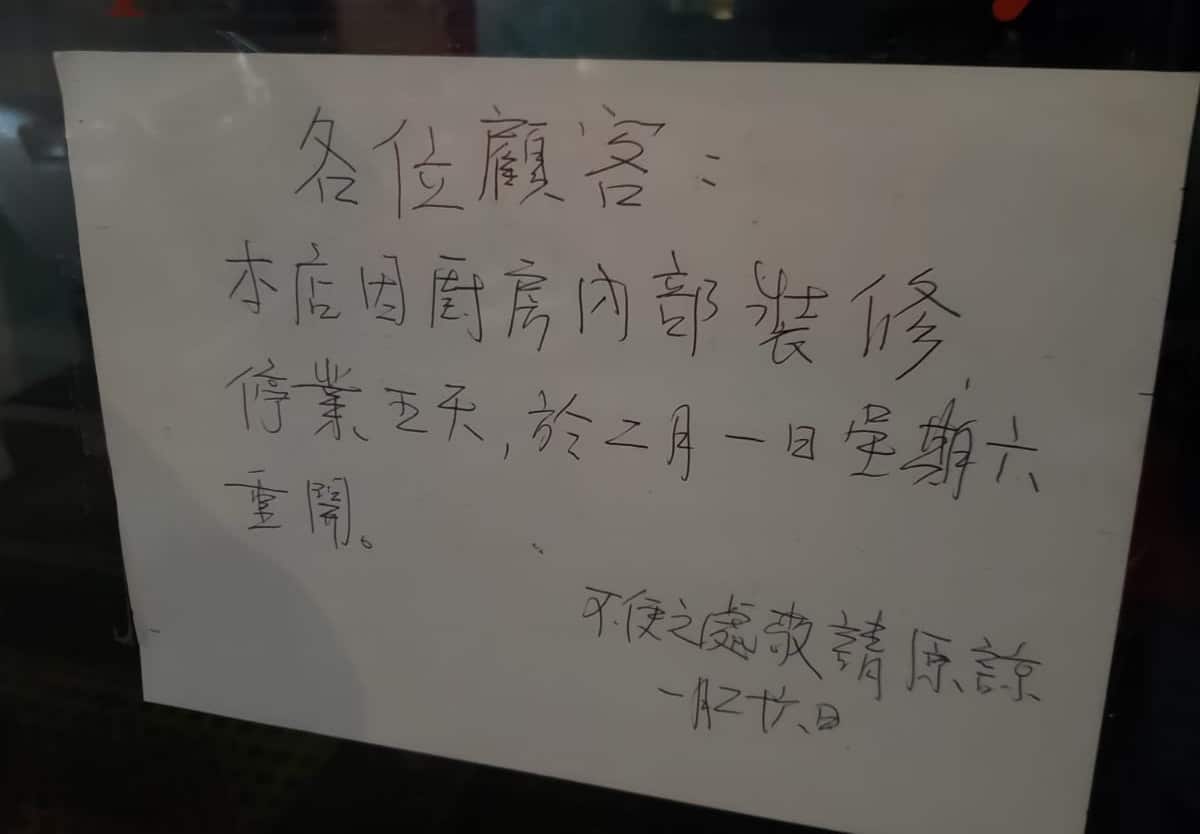 各位顧客：
本店因廚房內部裝修
停業五天，於二月一日星期六
重開。
不便之處敬請原諒
一月二十六日